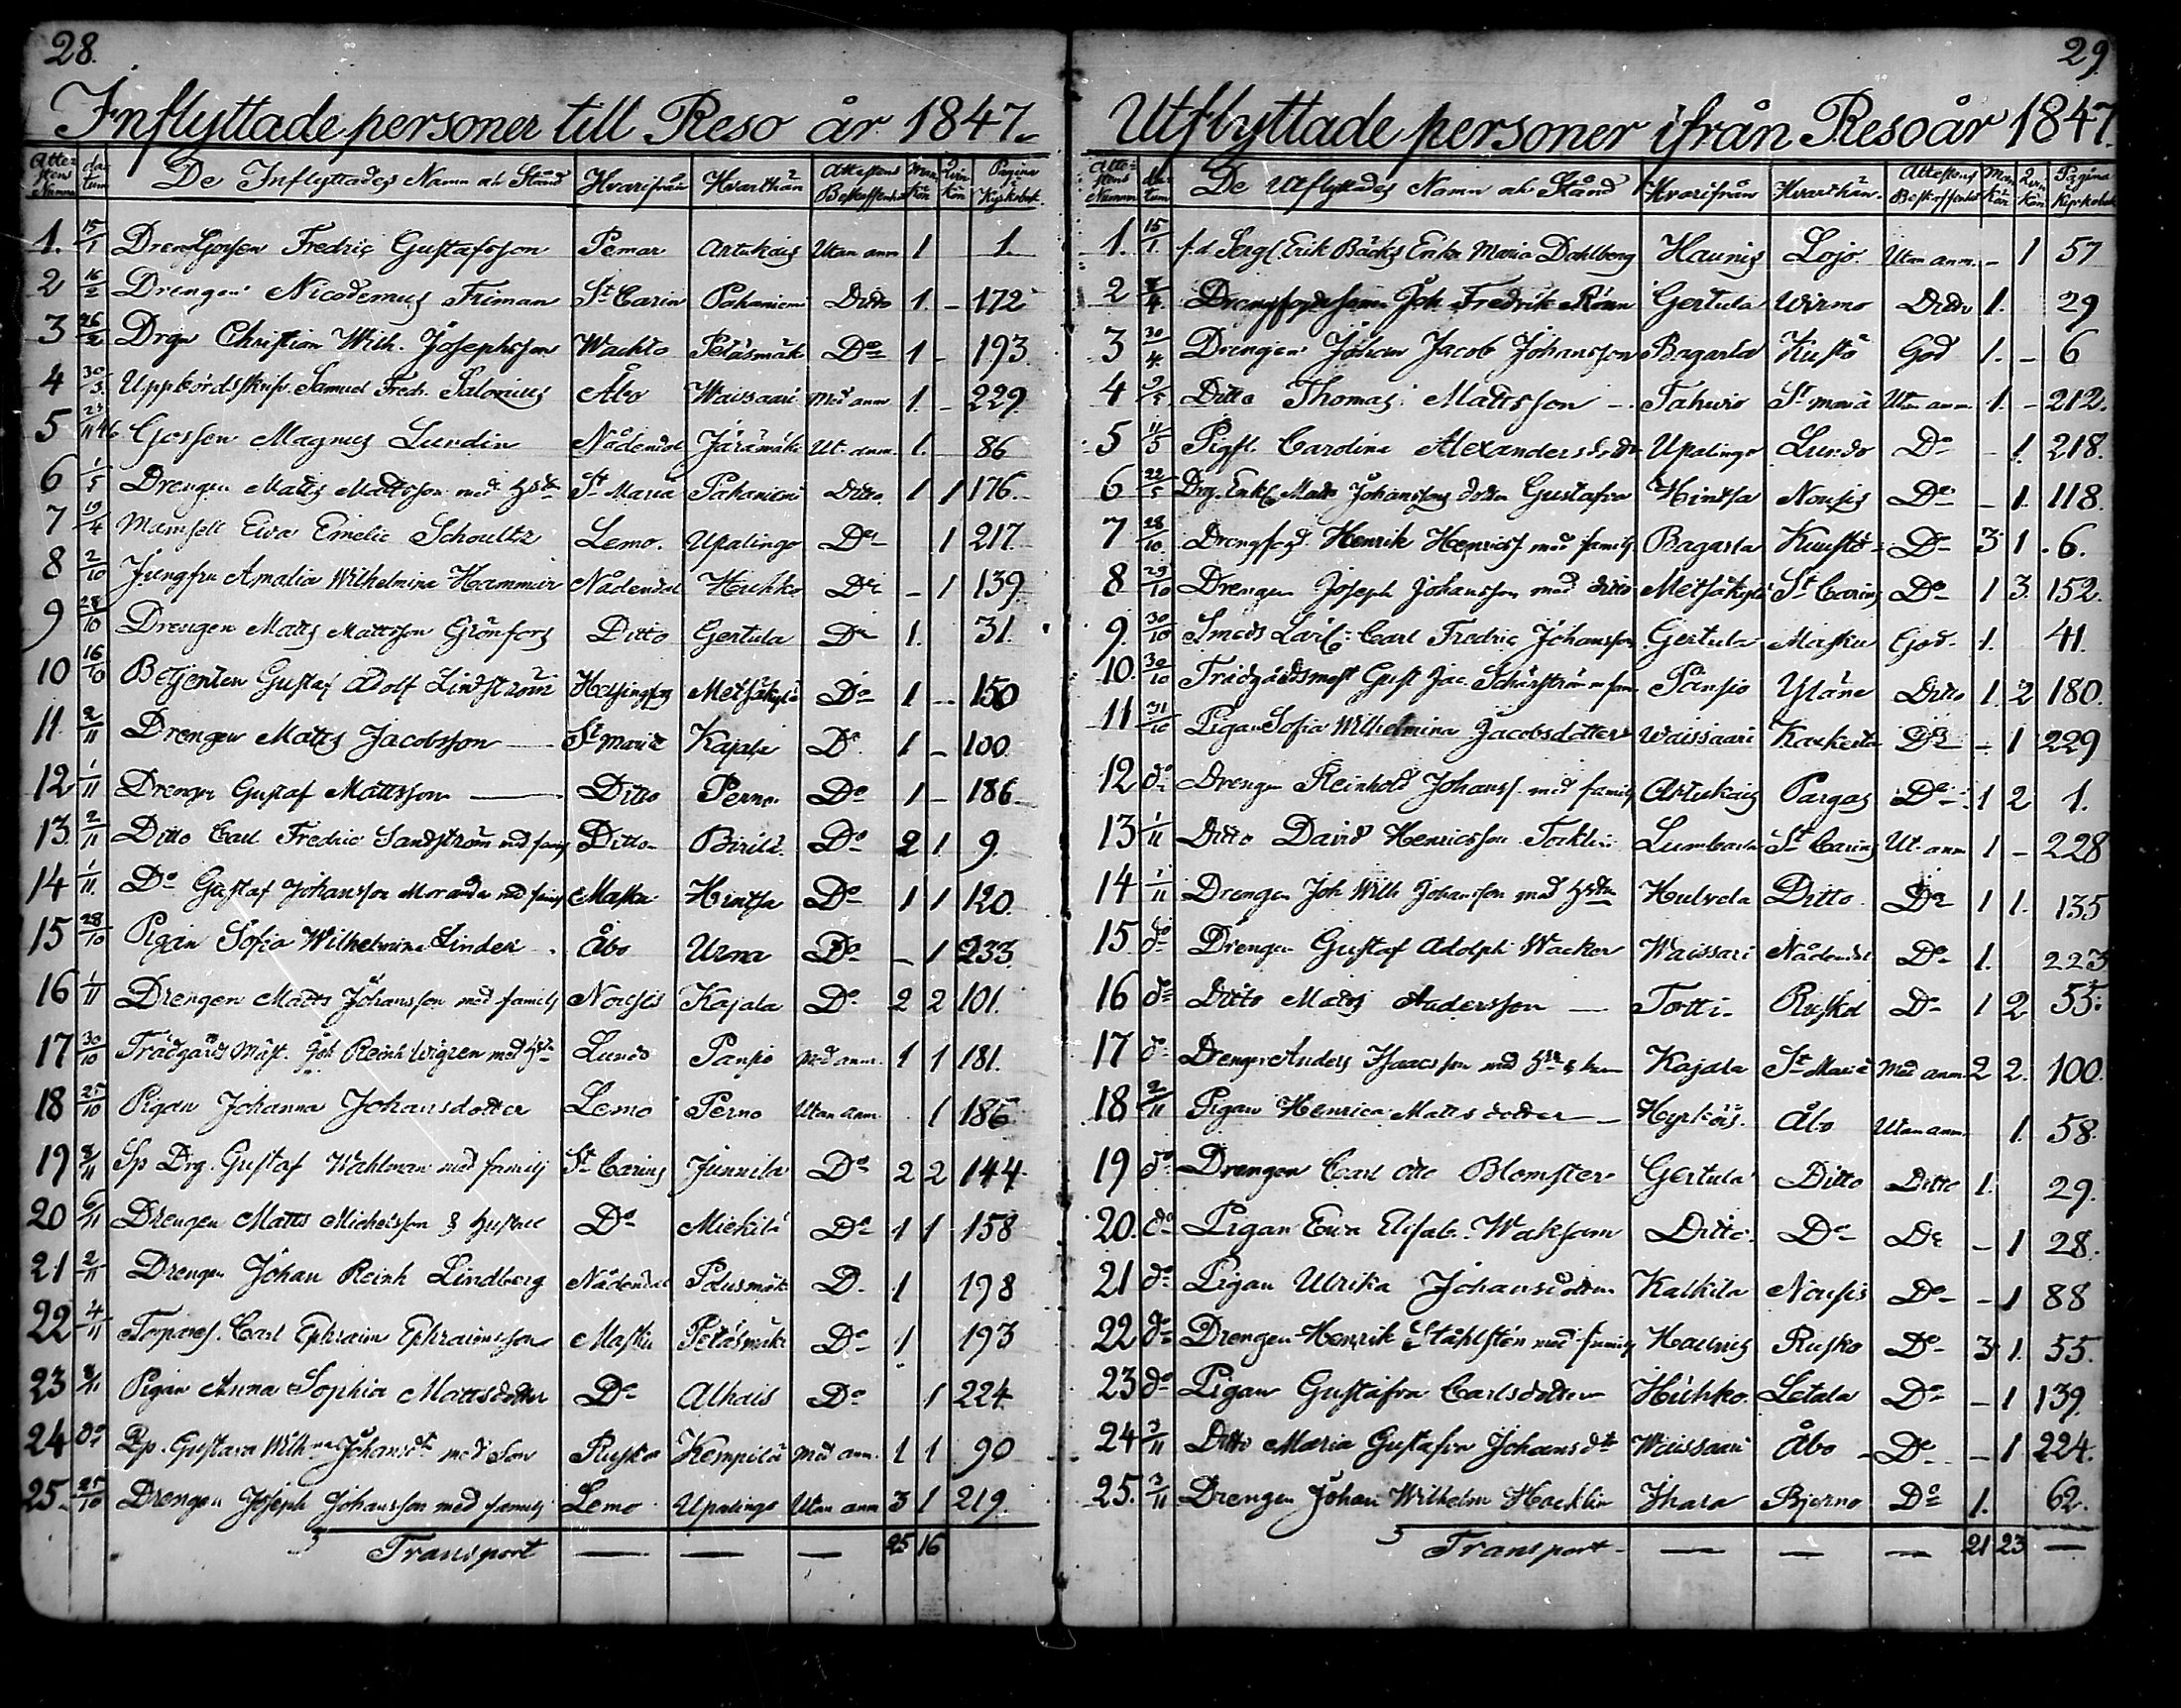 28.
Inflyttade personer till Reso år 1847.
Attestens Numm datum De Inflyttades Namn och Stånd Hvarifrån Hvarthän Attestens Beskaffenhet Mankön Qvinkön Pagina i Kyrkobok.
1. 15/1 Dreng Gossen Fredric Gustafsson Pemar Artukais Utan anm 1 1.
2 16/2 Drengen Nicodemus Friman St Carin Pahaniemi Ditto 1. - 172
3 26/2 Drgn Christian Wilh. Josephsson Wachto Petäsmäk Do 1 - 193.
4 30/3. Uppbördsskrifv. Samuel Fredr. Salonius Åbo Waissaari Med anm 1. - 229.
5 11 46 Gossen Magnus Lundin Nådendal Järämäki Ut. anm. 1. 86
6 1/5 Drengen Matts Mattsson med hstr St Maria Pahaniemi Ditto 1 1 176.
7 19/4 Mamsell Eva Emelie Schoultz Lemo. Upalingo Do 1 217.
8 2/10 Jungfru Amalia Wilhelmina Hammar Nådendal Huhko Do - 1 139.
9 28/10 Drengen Matts Mattsson Grönfors Ditto Gertula Do 1. 31.
10 16/10 Betjenten Gustaf Adolf Lindström Helsingfors Metsäkylä Do 1 - 150
11. 2/11 Drengen Matts Jacobsson St Maria Kajala Do. 1 - 100.
12 1/11 Drengen Gustaf Mattsson Ditto Perno. Do 1 - 186.
13. 2/11 Ditto Carl Fredric Sandström med familj Ditto Birilä. Do 2 1. 9.
14 1/11. Do Gustaf Johansson Morander med familj Masku Hintsa Do 1 1 120.
15 28/10 Pigan Sofia Wilhelmina Linder Åbo Urna Do - 1 233.
16 1/11 Drengen Matts Johansson med familj Nousis Kajala Do 2 2 101.
17 30/10 Trädgårds Mäst. Joh Reinh Wigren med hstr Lundo Pansio Med anm. 1 1 181.
18 25/10 Pigan Johanna Johansdotter Lemo Perno Utan anm 1 186
19 2/11 Sp Drg. Gustaf Wahlman med familj St Carins Junnila Do 2 2 144
20 6/11 Drengen Matts Michelsson & hustru Do Mickilä Do 1 1 158
21 2/11 Drengen Johan Reinh Lindberg Nådendal Do 1 198
22 4/11 Torparef. Carl Ephraim Ephraimsson Masku Petäsmäki Do 1 193
23 8/11 Pigan Anna Sophia Mattsdotter Do Alhais Do 1 224.
24 do Gustava Wilhna Johansdtr med Son Rusko Kempilä Med anm. 1 1 90
25. 25/10 Drengen Joseph Johansson med familj Lemo Upalingo Utan anm 3 1 219.
Transport — — — 25 16
29
Utflyttade personer ifrån Reso år 1847.
Attestens Numm datum De Utflyttades Namn och Stånd Hvarifrån Hvarthän. Attestens Beskaffenhet Mankön Qvinkön Pagina i Kyrkobok
1. 15/1. f.d. Serg. Erik Bäcks Enka Maria Dahlberg Haunis Lojo Utan anm. - 1 57
2 8/4. Joh. Fredrik Rönn Gertula Wirmo Ditto 1. 29
3 30/4. Drengen Johan Jacob Johansson Bagarla Kustö God 1. - 6
4 9/5 Ditto Thomas Mattsson Tahvio St Maria Utan anm 1. - 212.
5 11/5 Pigfl. Carolina Alexandersdottr Upalingo Lundo Do - 1. 218.
6 22/5 Drg. Enkl. Matts Johanssons dotter Gustafva Hindsa Nousis Do - 1. 118.
7 28/10. Henrik Henricss med familj Bagarla Kustö Do 3 1. 6.
8 29/10 Drengen Joseph Johansson med ditto Metsäkylä St Carins Do 1 3. 152.
9. 30/10 Smeds Lärl: Carl Fredric Johansson Gertula Masku God. 1. 41.
10. 30/10 Trädgårdsmäst Gust Jac. Schärström m fam. Pansio Yläne Ditto 1. 2 180.
11 31/10 Pigan Sofia Wilhelmina Jacobsdotter Waissaari Karkula Do - 1 229
12 do Drengen Reinhold Johanss. med familj Artukais Pargas Do 1 2 1.
13 1/11 Ditto David Henricsson Tocklin Lumbarla St Carins Ut. anm 1 - 228
14 1/11 Drengen Joh Wilh Johansson med hstr Hulvela Ditto Do 1 1. 135
15 do Drengen Gustaf Adolph Wacker Waissari Nådendl Do 1. 223
16 do Ditto Matts Andersson Tortti Rusko Do 1 2 55.
17 do Drengen Anders Isaacsson med Kajala St Maria Med anm. 2 2. 100.
18 2/11 Pigan Henrica Mattsdotter Hyrköis. Åbo Utan anm. 1. 58.
19 do Drengen Carl Otto Blomster Gertula Ditto Ditto 1. 29.
20. do Pigan Eva Elisab. Waksam Ditto Do Do - 1 28.
21 do Pigan Ulrika Johansdotter Kalkila Nousis Do - 1 88
22 do Drengen Henrik Ståhlsten med familj Haunis Rusko Do 3 1. 55.
23 do Pigan Gustafva Carlsdotter Huhko. Letala Do - 1 139.
24 3/11 Ditto Maria Gustafva Johansdtr Waissaari Åbo Do - 1 224.
25. 3/11 Drengen Johan Wilhelm Hacklin Ihala Bjerno Do 1. 62.
Transport — — — 21 23 —